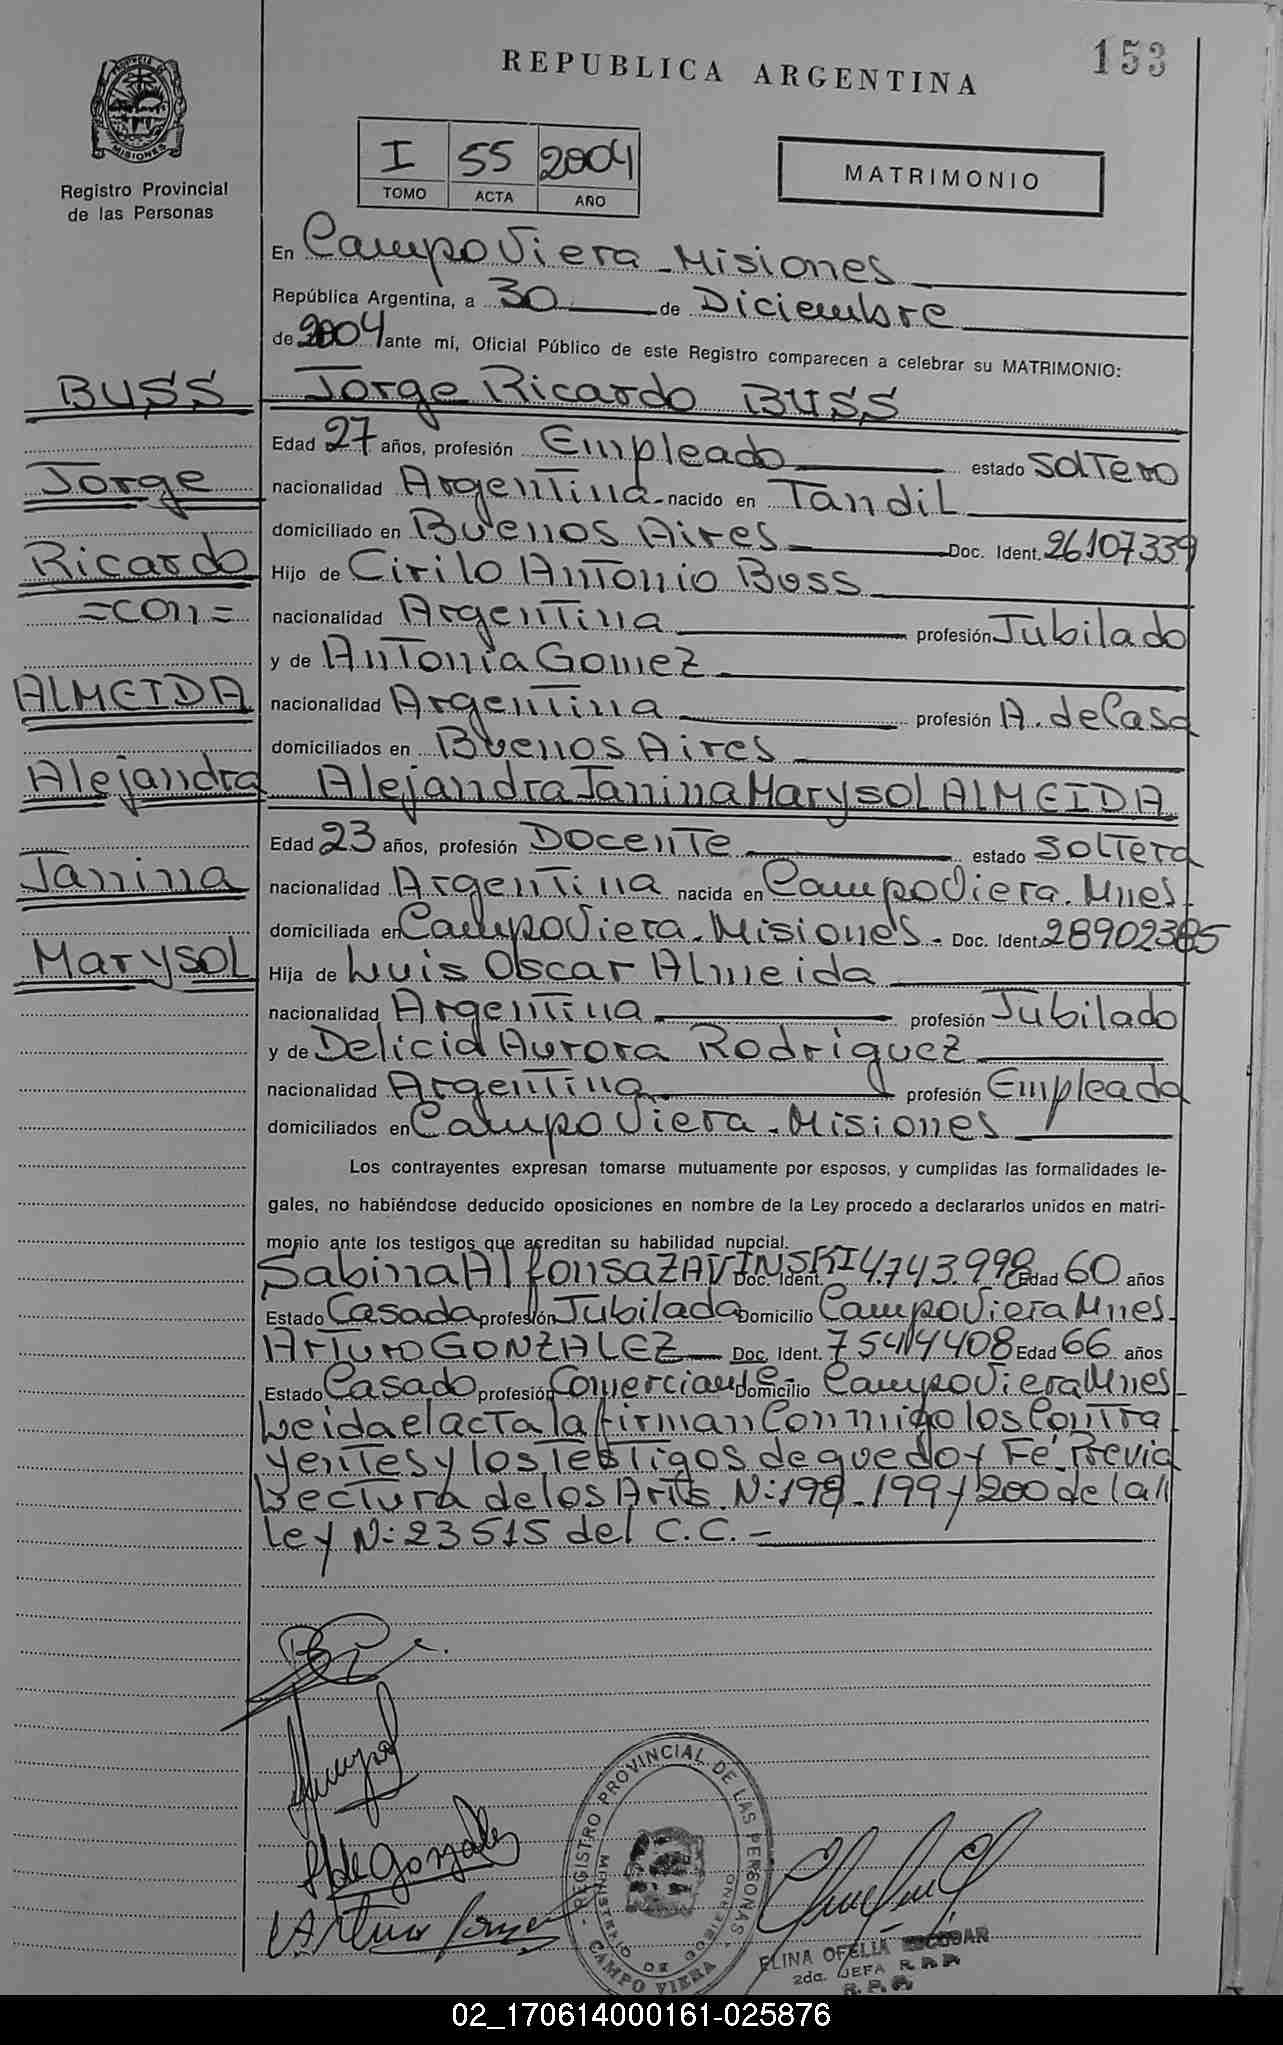 153
REPUBLICA ARGENTINA
PROVINCIA DE MISIONES
Registro Provincial
de las Personas
I 55 2004
TOMO ACTA AÑO
MATRIMONIO
En Campo Viera - Misiones
República Argentina, a 30 de Diciembre
de 2004 ante mí, Oficial Público de este Registro comparecen a celebrar su MATRIMONIO:
BUSS
Jorge
Ricardo
=con=
ALMEIDA
Alejandra
Janina
Marysol
Jorge Ricardo BUSS
Edad 27 años, profesión Empleado estado Soltero
nacionalidad Argentina - nacido en Tandil
domiciliado en Buenos Aires Doc. Ident. 26107339
Hijo de Cirilo Antonio Buss
nacionalidad Argentina profesión Jubilado
y de Antonia Gomez
nacionalidad Argentina profesión A. de Casa
domiciliados en Buenos Aires
Alejandra Janina Marysol ALMEIDA
Edad 23 años, profesión Docente estado Soltera
nacionalidad Argentina nacida en Campo Viera. Mnes
domiciliada en Campo Viera - Misiones - Doc. Ident. 28902385
Hija de Luis Oscar Almeida
nacionalidad Argentina profesión Jubilado
y de Delicia Aurora Rodriguez
nacionalidad Argentina profesión Empleada
domiciliados en Campo Viera - Misiones
Los contrayentes expresan tomarse mutuamente por esposos, y cumplidas las formalidades le-
gales, no habiéndose deducido oposiciones en nombre de la Ley procedo a declararlos unidos en matri-
monio ante los testigos que acreditan su habilidad nupcial.
Sabina Alfonsa ZAVINSKI Doc. Ident. 4.743.998 Edad 60 años
Estado Casada profesión Jubilada Domicilio Campo Viera Mnes.
Arturo GONZALEZ Doc. Ident. 7544408 Edad 66 años
Estado Casado profesión Comerciante Domicilio Campo Viera Mnes
Leida el acta la firman Conmigo los Contra
yentes y los Testigos de que doy Fé. Previa
Lectura de los Arts. N: 198 - 199 y 200 de la
Ley N: 23515 del C.C. -
de Gonzalez
Arturo
REGISTRO PROVINCIAL DE LAS PERSONAS
MINISTERIO DE GOBIERNO
CAMPO VIERA
ELINA OFELIA ESCOBAR
2da. JEFA R.P.P.
02_170614000161-025876